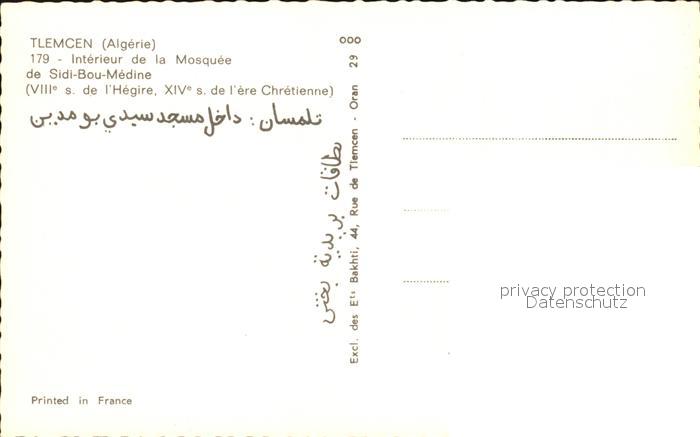 TLEMCEN (Algérie)
179 - Intérieur de la Mosquée
de Sidi-Bou-Médine
(VIIIᵉ s. de l'Hégire, XIVᵉ s. de l'ère Chrétienne)
تلمسان: داخل مسجد سيدي بومدين
بطاقات بريدية بختي
Excl. des Eᵗˢ Bakhti, 44, Rue de Tlemcen - Oran 29
000
privacy protection
Datenschutz
Printed in France